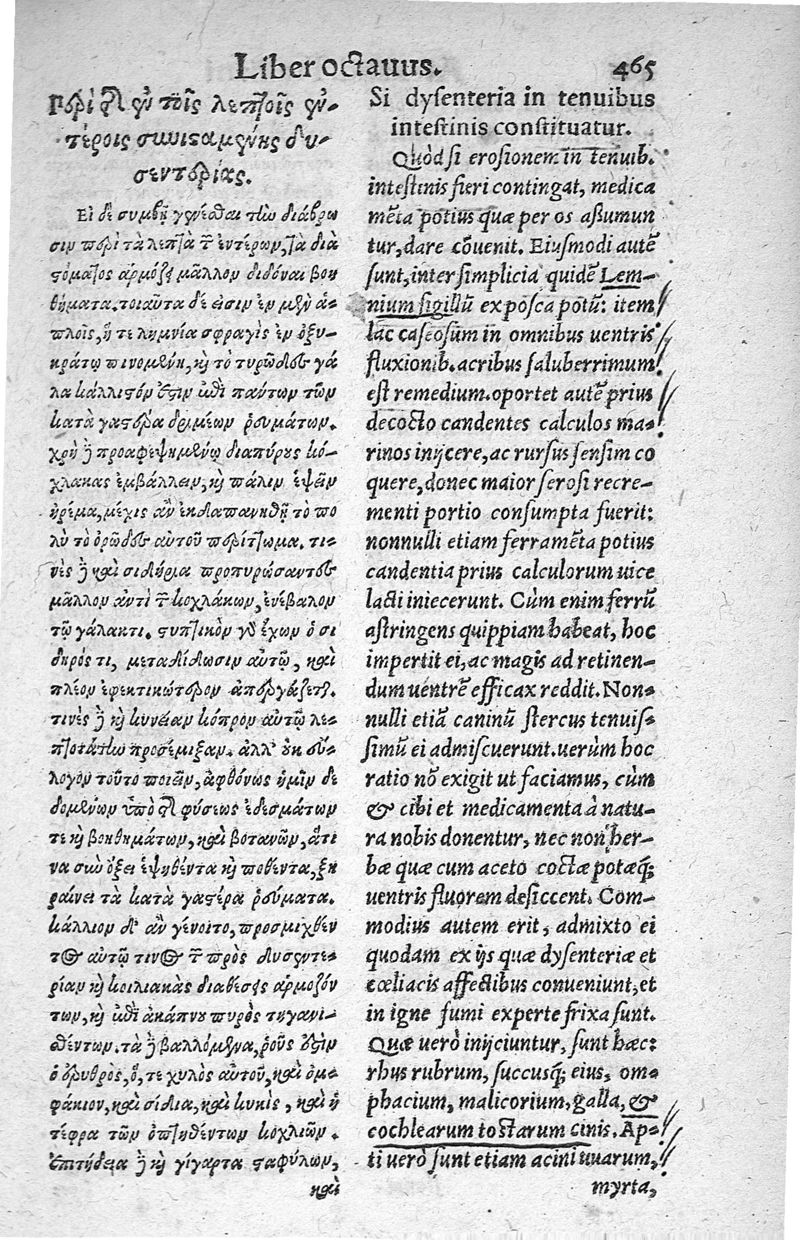 Liber octavus. 465
Περὶ τῆς ἐν τοῖς λεπτοῖς ἐν-
τέροις συνισταμένης δυ-
σεντερίας.
Εἰ δὲ συμβῇ γενέσθαι τὴν διάβρω
σιν περὶ τὰ λεπτὰ τῶν ἐντέρων, τὰ διὰ
στόματος ἁρμόζει μᾶλλον διδόναι βοη
θήματα. τοιαῦτα δέ εἰσιν ἐν μὲν ἁ-
πλοῖς, ἥ τε λημνία σφραγὶς ἐν ὀξυ-
κράτῳ πινομένη, καὶ τὸ τυρῶδες γά
λα κάλλιστόν ἐστιν ἐπὶ πάντων τῶν
κατὰ γαστέρα δριμέων ῥευμάτων.
χρὴ δὲ προαφεψημένῳ διαπύρους κό-
χλακας ἐμβάλλειν, καὶ πάλιν ἑψεῖν
ἠρέμα, μέχις ἂν ἐκδαπανηθῇ τὸ πο
λὺ τὸ ὀρῶδες αὐτοῦ περίττωμα. τι-
νὲς δὲ καὶ σιδήρια προπυρώσαντες
μᾶλλον ἀντὶ τῶν κοχλάκων, ἐνέβαλον
τῷ γάλακτι. στυπτικὸν γὰρ ἔχων ὁ σί
δηρός τι, μεταδίδωσιν αὐτῷ, καὶ
πλέον ἐφεκτικώτερον ἀπεργάζεται.
τινὲς δὲ καὶ κυνείαν κόπρον αὐτῷ λε-
πτοτάτην προσέμιξαν. ἀλλ' οὐκ εὔ-
λογον τοῦτο ποιεῖν, ἀφθόνως ἡμῖν δε
δομένων ὑπὸ τῆς φύσεως ἐδεσμάτων
τε καὶ βοηθημάτων, καὶ βοτανῶν, ἅτι
να σὺν ὄξει ἑψηθέντα καὶ ποθέντα, ξη
ραίνει τὰ κατὰ γαστέρα ῥεύματα.
κάλλιον δ' ἂν γένοιτο, προσμιχθέν
τος αὐτῷ τινος τῶν πρὸς δυσεντε-
ρίαν καὶ κοιλιακὰς διαθέσεις ἁρμοζόν
των, καὶ ἐπὶ ἀκάπνου πυρὸς τηγανι-
σθέντων. τὰ δὲ βαλλόμενα, ῥοῦς ἐστιν
ὁ ἐρυθρὸς, ὅ, τε χυλὸς αὐτοῦ, καὶ ὀμ-
φάκιον, καὶ σίδια, καὶ κηκὶς, καὶ ἡ
τέφρα τῶν ὀπτηθέντων κοχλιῶν.
ἐπιτήδεια δὲ καὶ γίγαρτα σταφύλων,
καὶ
Si dysenteria in tenuibus
intestinis constituatur.
Quòd si erosionem in tenuib.
intestinis fieri contingat, medica
mẽta potius quæ per os assumun
tur, dare cõuenit. Eiusmodi autẽ
sunt, inter simplicia quidẽ Lem-
nium sigillũ ex posca potũ: item
lac caseosum in omnibus uentris
fluxionib. acribus saluberrimum
est remedium. oportet autẽ prius
decocto candentes calculos ma-
rinos inijcere, ac rursus sensim co
quere, donec maior serosi recre-
menti portio consumpta fuerit:
nonnulli etiam ferramẽta potius
candentia prius calculorum uice
lacti iniecerunt. Cùm enim ferrũ
astringens quippiam habeat, hoc
impertit ei, ac magis ad retinen-
dum uentrẽ efficax reddit. Non-
nulli etiã caninũ stercus tenuis-
simũ ei admiscuerunt. uerùm hoc
ratio nõ exigit ut faciamus, cùm
& cibi et medicamenta à natu-
ra nobis donentur, nec non her-
bæ quæ cum aceto coctæ potæq;
uentris fluorem desiccent. Com-
modius autem erit, admixto ei
quodam ex ijs quæ dysenteriæ et
cœliacis affectibus conueniunt, et
in igne fumi experte frixa sunt.
Quæ uerò inijciuntur, sunt hæc:
rhus rubrum, succusq; eius, om-
phacium, malicorium, galla, &
cochlearum tostarum cinis. Ap-
ti uerò sunt etiam acini uuarum,
myrta,